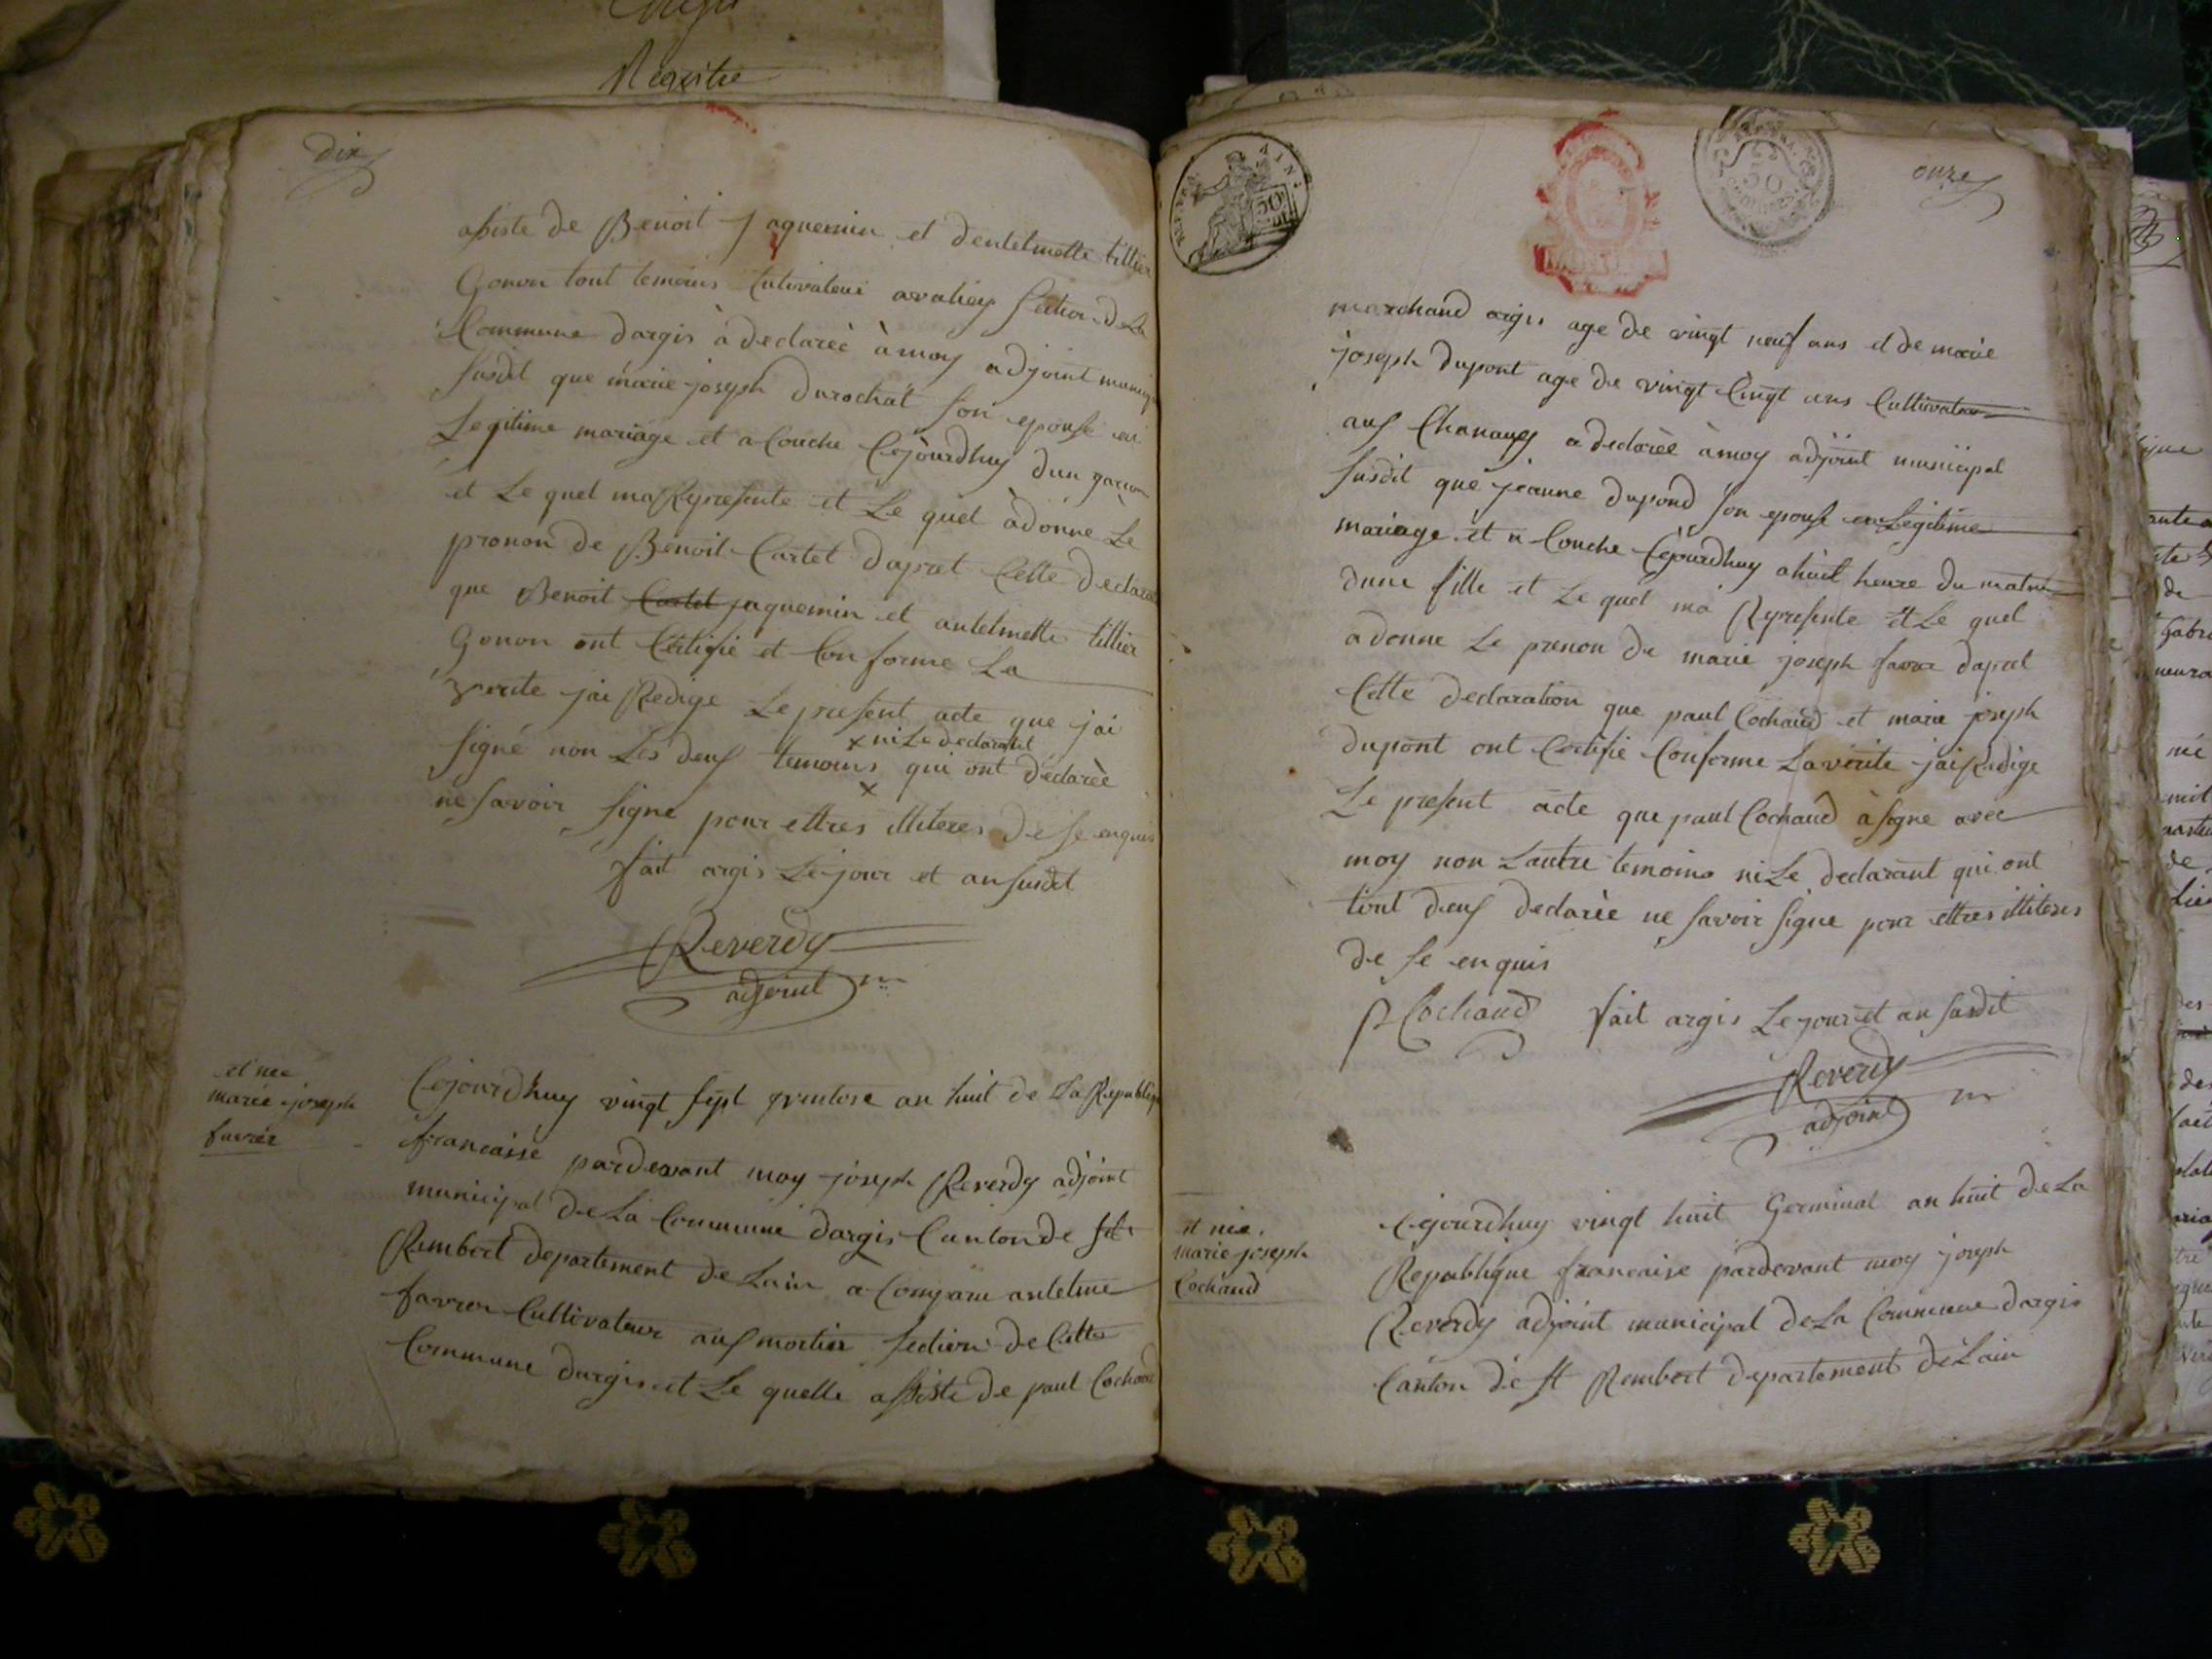 Registre
dix
assiste de Benoit jaquemin et dentelmette tillier
Gonon tout temoins Cutivateur avaliey section de La
Commune dargis à declareè à moy adjoint municip
susdit que marie joseph durochat son epouse en
Legitime mariage et a Couche Cejourdhuy dun garcon
et Le quel ma Represente et Le quel àdonne Le
pronon de Benoit Cartet dapret Cette declara
que Benoit Cartet jaquemin et antelmette tillier
Gonon ont Certifie et Conforme La
verite jai Redige Le present acte que jai
x ni Le declarant
signé non Les deus temoins qui ont declareè
x
ne savoir signe pour ettres illiteres de se enquis
fait argis Le jour et an susdit
Reverdy
adjoint m
et nee
marie joseph
favrèr
Cejourdhuy vingt sept ventose an huit de La Republiq
francaise pardevant moy joseph Reverdy adjoint
municipal de La Commune dargis Canton de st
Rembert departement de Lain a Comparu antelme
favrer Cultivateur aus mortier section de Cette
Commune dargis et Le quelle assiste de paul Cochand
50
50
onze
marchand argis age de vingt neuf ans et de marie
joseph dupont age de vingt Cinqt ans Cultivateur
aus Chanauy a declareè à moy adjoint municipal
susdit que jeanne dupond son epouse en Legitime
mariage et a Couche Cejourdhuy ahuit heure du matin
dune fille et Le quel ma Represente et Le quel
a donne Le prenon de marie joseph favrer dapret
Cette declaration que paul Cochaud et marie joseph
dupont ont Certifie Conforme La verite jai Redige
Le present acte que paul Cochaud à signe avec
moy non Lautre temoins ni Le declarant qui ont
tout deus declareè ne savoir signe pour ettres illiteres
de se enquis
p Cochaud fait argis Le jour et an susdit
Reverdy
adjoint m
et nee
marie joseph
Cochaud
Cejourdhuy vingt huit Germinal an huit de La
Republique francaise pardevant moy joseph
Reverdy adjoint municipal de La Commune dargis
Canton de st Rembert departement de Lain